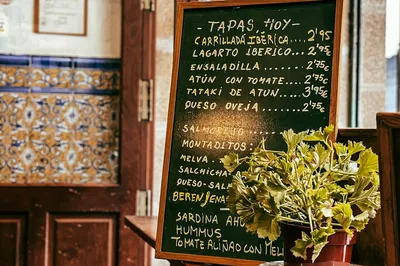 - TAPAS, HOY -
CARRILLADA IBÉRICA... 2'95
LAGARTO IBÉRICO... 2'95
ENSALADILLA........ 2'75
ATÚN CON TOMATE.... 2'75
TATAKI DE ATUN..... 3'95
QUESO OVEJA ....... 2'75
SALMOREJO ....
MONTADITOS:
MELVA
SALCHICHA
QUESO-SAL
BERENJENA
SARDINA AHU
HUMMUS
TOMATE ALIÑAO CON MEL